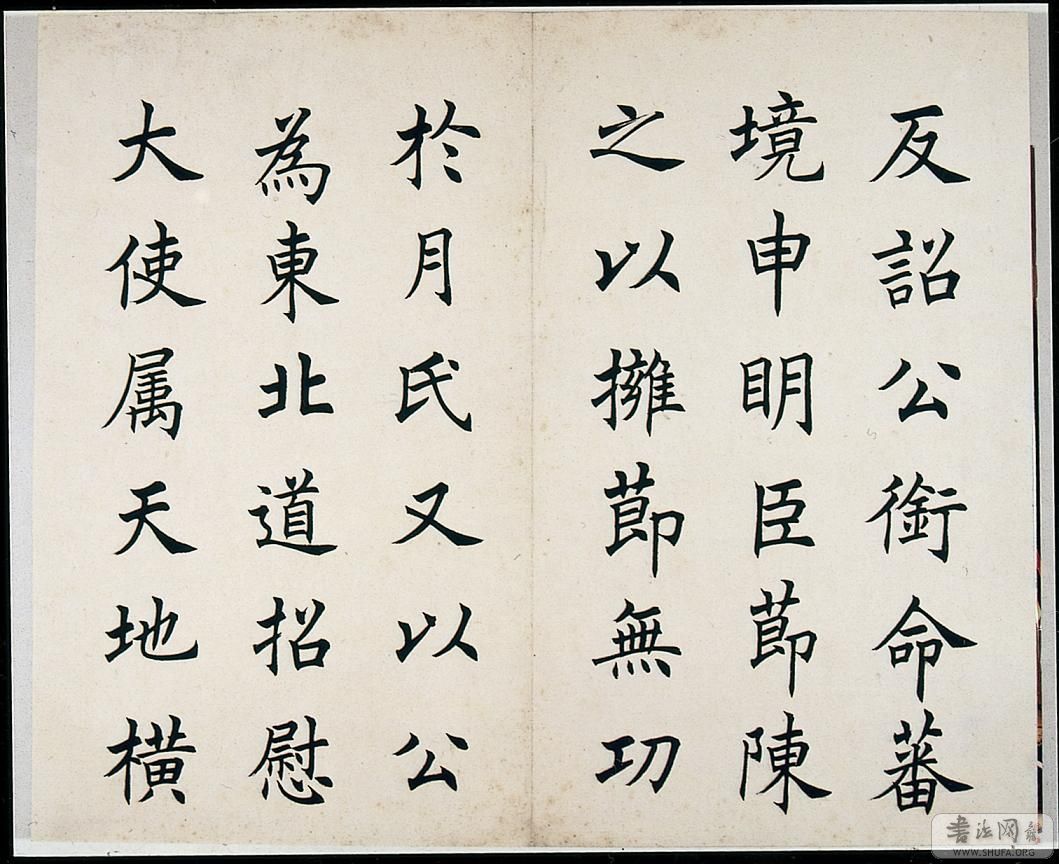 反詔公銜命蕃
境申明臣莭陳
之以擁莭無功
於月氏又以公
為東北道招慰
大使属天地橫
書法网
WWW.SHUFA.ORG